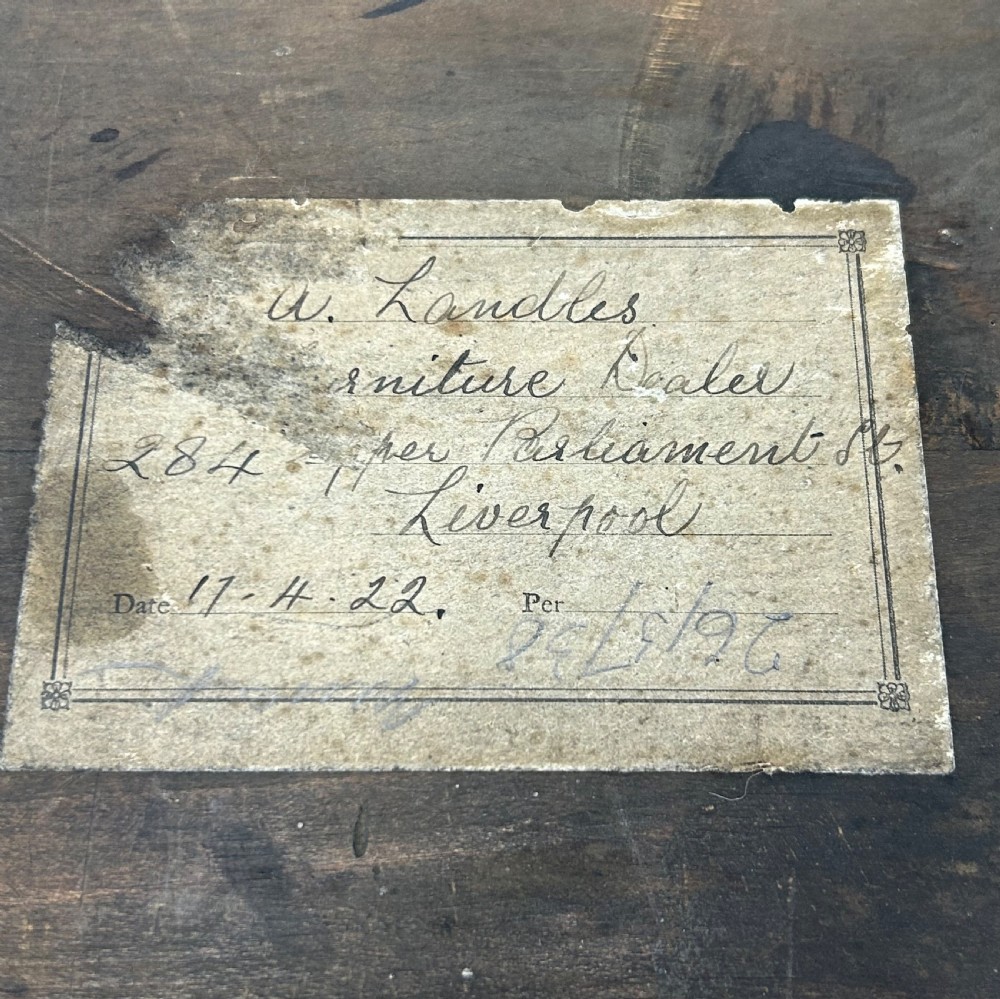 A. Landles
rniture Dealer
284 pper Parliament St.
Liverpool
Date 17-4-22. Per